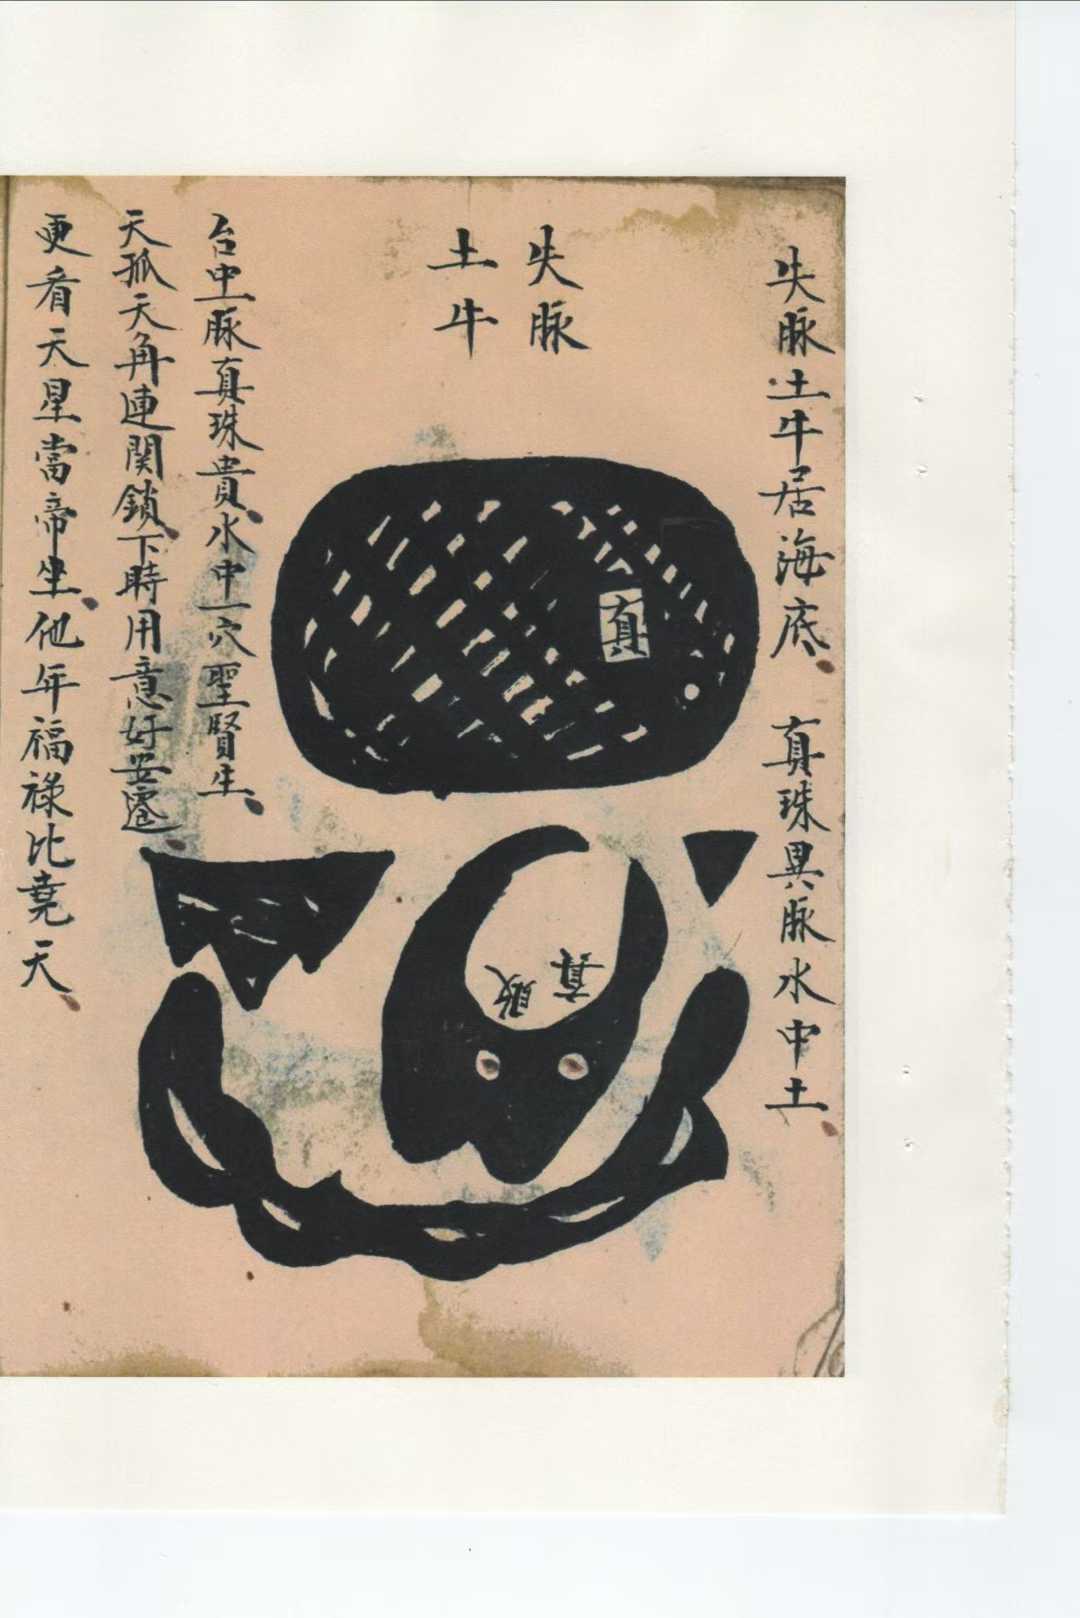 失脉土牛居海底 真珠異脉水中土
失脉
土牛
真
真
敗
台中土脉真珠貴水中一穴聖賢生
天孤天角連関鎖下時用意好安遷
更看天星當帝坐他年福祿比堯天